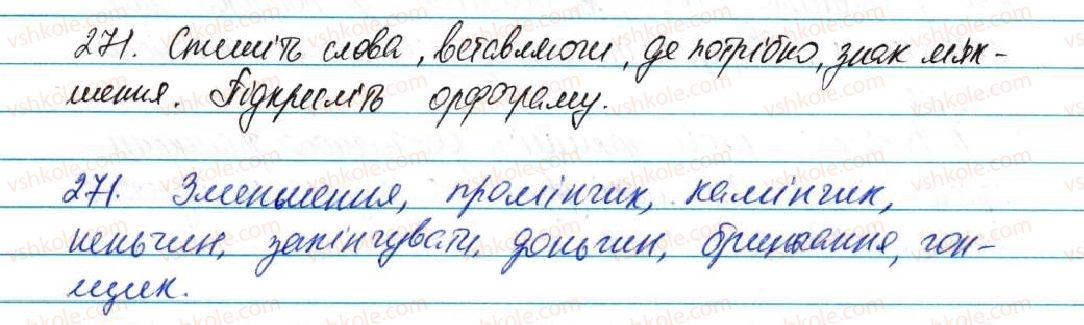 271. Спишіть слова, вставляючи, де потрібно, знак м'як-
шення. Підкресліть орфограму.
271. Зменшення, промінчик, камінчик,
неньчин, закінчувати, доньчин, бриньання, гон-
щик.